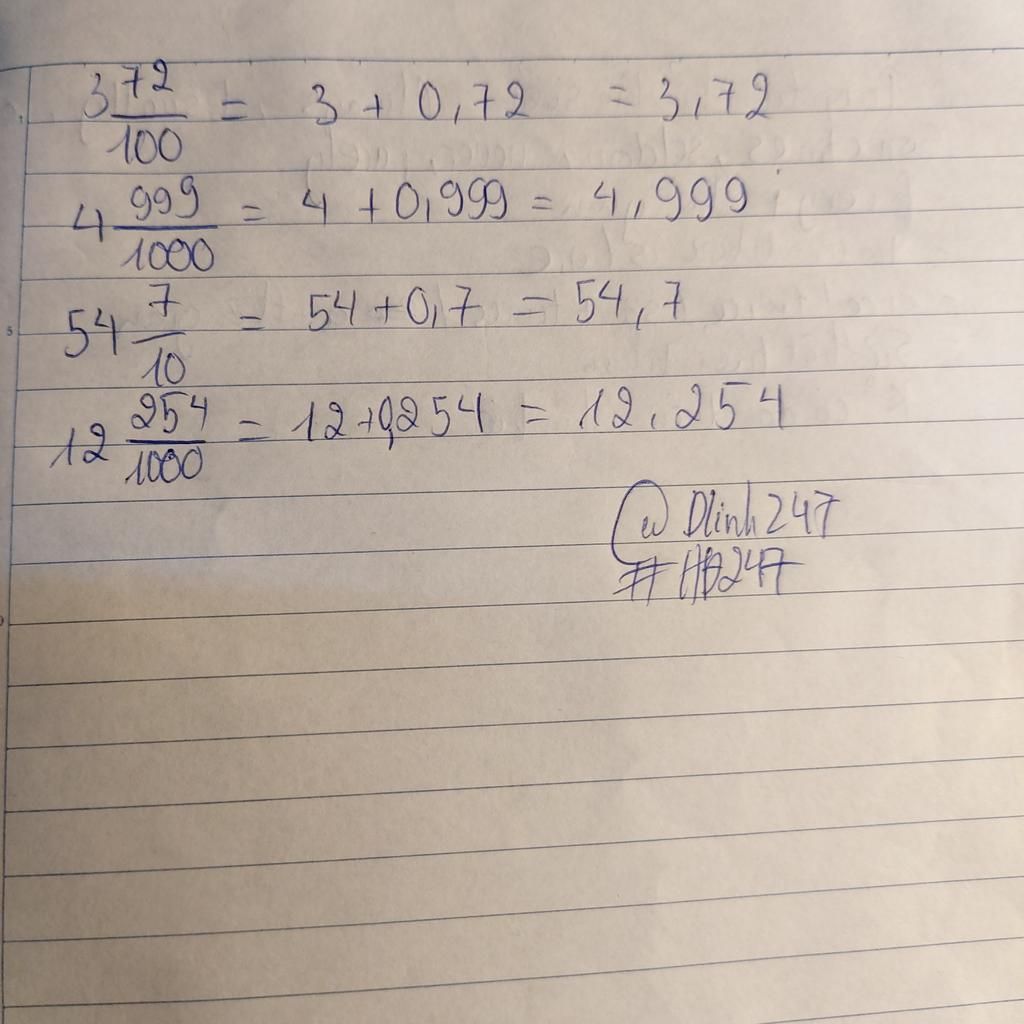 3 72/100 = 3 + 0,72 = 3,72
4 999/1000 = 4 + 0,999 = 4,999
54 7/10 = 54 + 0,7 = 54,7
12 254/1000 = 12 + 0,254 = 12,254
@Dlinh247
#HĐ247